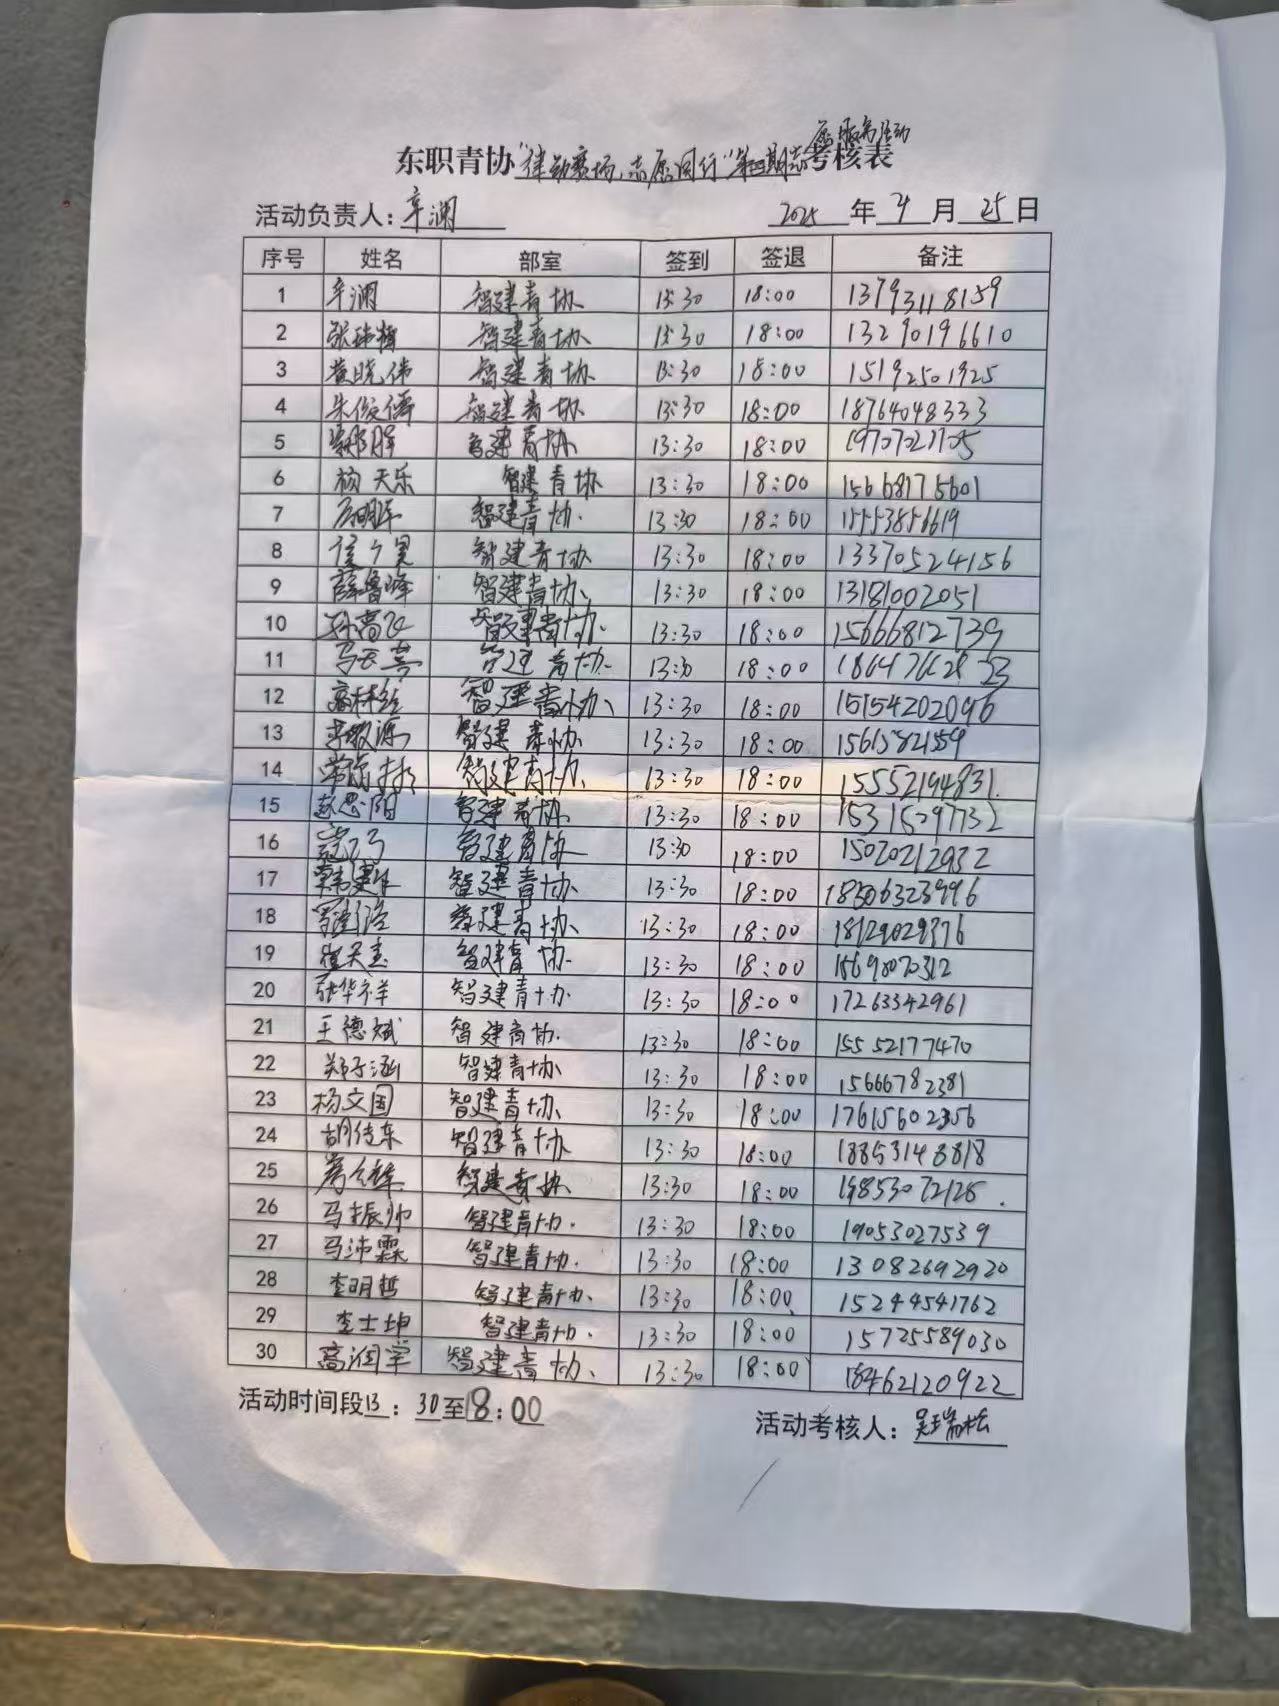 东职青协"律动赛场,志愿同行"第四期志愿服务活动考核表
活动负责人:辛澜 2025年4月25日
序号 姓名 部室 签到 签退 备注
1 辛澜 智建青协 13:30 18:00 13793118159
2 张 智建青协 13:30 18:00 13290196610
3 黄晓伟 智建青协 13:30 18:00 15192501925
4 朱俊儒 智建青协 13:30 18:00 18764048333
5 智建青协 13:30 18:00 19707021705
6 杨天乐 智建青协 13:30 18:00 15668175601
7 智建青协 13:30 18:00 15553856619
8 智建青协 13:30 18:00 13370524156
9 薛鲁峰 智建青协 13:30 18:00 13181002051
10 孙高飞 智建青协 13:30 18:00 15666812739
11 智建青协 13:30 18:00
12 智建青协 13:30 18:00 15154202096
13 李敬源 智建青协 13:30 18:00 15615821559
14 智建青协 13:30 18:00 15552194831
15 赵思阳 智建青协 13:30 18:00 15315297732
16 智建青协 13:30 18:00 15020212932
17 智建青协 13:30 18:00 18506323996
18 智建青协 13:30 18:00
19 智建青协 13:30 18:00
20 张华祥 智建青协 13:30 18:00 17263342961
21 王德斌 智建青协 13:30 18:00 15552177470
22 郑子涵 智建青协 13:30 18:00 15666782381
23 杨文国 智建青协 13:30 18:00 17615602356
24 胡传东 智建青协 13:30 18:00 18853148818
25 智建青协 13:30 18:00 19853072126
26 马振帅 智建青协 13:30 18:00 19053027539
27 马沛霖 智建青协 13:30 18:00 13082692920
28 李明哲 智建青协 13:30 18:00 15244541762
29 李士坤 智建青协 13:30 18:00 15725589030
30 高润宇 智建青协 13:30 18:00 18462120922
活动时间段13:30至18:00 活动考核人:吴瑞松